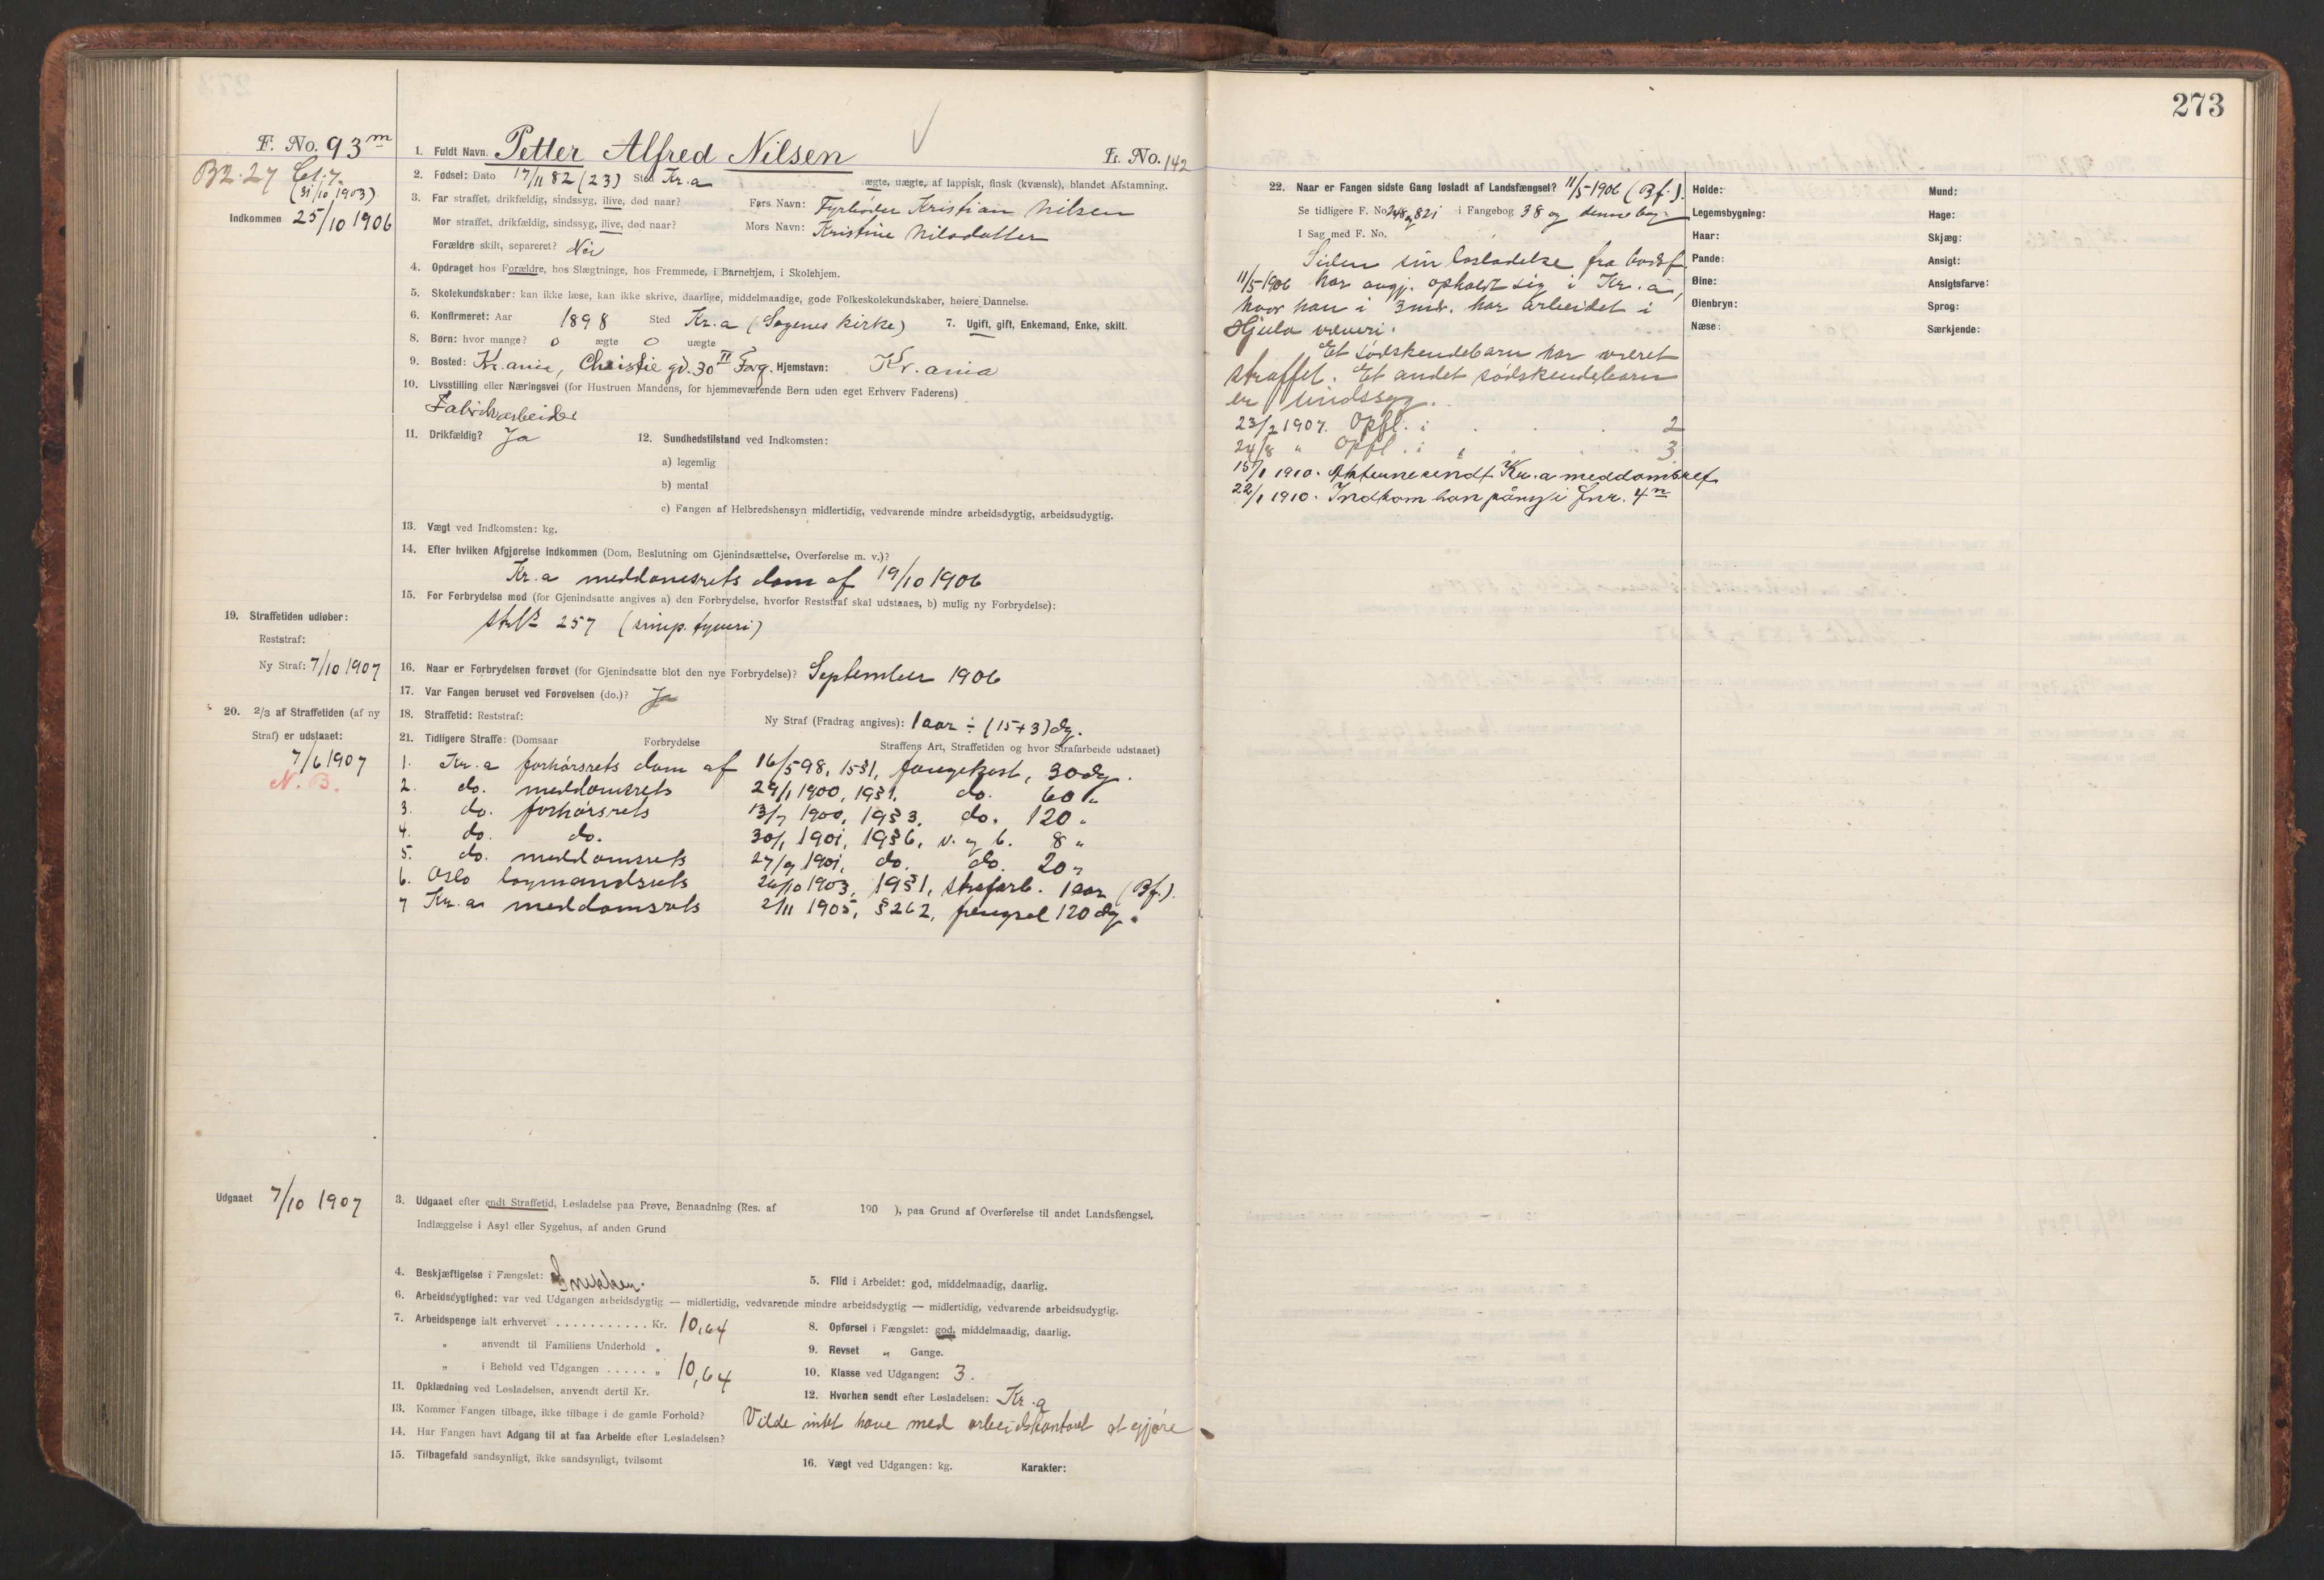 273
F. No. 93 m
B2.27 Cel.7.
(31/10 1903)
Indkommen 25/10 1906
1. Fuldt Navn. Petter Alfred Nilsen Fr. No. 142
2. Fødsel: Dato 17/11 82 (23) Sted Kr.a ægte, uægte, af lappisk, finsk (kvænsk), blandet Afstamning.
3. Far straffet, drikfældig, sindssyg, ilive, død naar? Fars Navn: Fyrbøder Kristian Nilsen
Mor straffet, drikfældig, sindssyg, ilive, død naar? Mors Navn: Kristine Nilsdatter
Forældre skilt, separeret? Nei
4. Opdraget hos Forældre, hos Slægtninge, hos Fremmede, i Barnehjem, i Skolehjem.
5. Skolekundskaber: kan ikke læse, kan ikke skrive, daarlige, middelmaadige, gode Folkeskolekundskaber, høiere Dannelse.
6. Konfirmeret: Aar 1898 Sted Kr.a (Sagenes kirke) 7. Ugift, gift, Enkemand, Enke, skilt.
8. Børn: hvor mange? 0 ægte 0 uægte
9. Bosted: Kr.ania, Christie gd. 30 II Forg. Hjemstavn: Kr.ania
10. Livsstilling eller Næringsvei (for Hustruen Mandens, for hjemmeværende Børn uden eget Erhverv Faderens)
Fabrikarbeider
11. Drikfældig? Ja 12. Sundhedstilstand ved Indkomsten:
a) legemlig
b) mental
c) Fangen af Helbredshensyn midlertidig, vedvarende mindre arbeidsdygtig, arbeidsudygtig.
13. Vægt ved Indkomsten: kg.
14. Efter hvilken Afgjørelse indkommen (Dom, Beslutning om Gjenindsættelse, Overførelse m. v.)?
Kr.a meddomsrets dom af 19/10 1906
15. For Forbrydelse mod (for Gjenindsatte angives a) den Forbrydelse, hvorfor Reststraf skal udstaaes, b) mulig ny Forbrydelse):
257 (simp. tyveri)
19. Straffetiden udløber:
Reststraf:
Ny Straf: 7/10 1907
16. Naar er Forbrydelsen forøvet (for Gjenindsatte blot den nye Forbrydelse)? September 1906
17. Var Fangen beruset ved Forøvelsen (do.)? Ja
18. Straffetid: Reststraf: Ny Straf (Fradrag angives): 1 aar ÷ (15+3) dg.
20. 2/3 af Straffetiden (af ny
Straf) er udstaaet:
7/6 1907
N.B.
21. Tidligere Straffe: (Domsaar Forbrydelse Straffens Art, Straffetiden og hvor Strafarbeide udstaaet)
1. Kr.a forhørsrets dom af 16/5 98, 15§1, fangekost, 30 dg.
2. do. meddomsrets 29/1 1900, 19§1, do. 60 "
3. do. forhørsrets 13/7 1900, 19§3, do. 120 "
4. do. do. 30/1 1901, 19§6, v. og b. 8 "
5. do. meddomsrets 27/9 1901, do. do. 20 "
6. Oslo lagmandsrets 26/10 1903, 19§1, strafarb. 1 aar (Bf.)
7 Kr.a meddomsrets 2/11 1905, §262, fængsel 120 dg.
Udgaaet 7/10 1907
3. Udgaaet efter endt Straffetid, Løsladelse paa Prøve, Benaadning (Res. af 190 ), paa Grund af Overførelse til andet Landsfængsel,
Indlæggelse i Asyl eller Sygehus, af anden Grund
4. Beskjæftigelse i Fængslet: Snekker. 5. Flid i Arbeidet: god, middelmaadig, daarlig.
6. Arbeidsdygtighed: var ved Udgangen arbeidsdygtig — midlertidig, vedvarende mindre arbeidsdygtig — midlertidig, vedvarende arbeidsudygtig.
7. Arbeidspenge ialt erhvervet ........... Kr. 10,64 8. Opførsel i Fængslet: god, middelmaadig, daarlig.
" anvendt til Familiens Underhold " 9. Revset " Gange.
" i Behold ved Udgangen ..... " 10,64 10. Klasse ved Udgangen: 3.
11. Opklædning ved Løsladelsen, anvendt dertil Kr. 12. Hvorhen sendt efter Løsladelsen: Kr.a
13. Kommer Fangen tilbage, ikke tilbage i de gamle Forhold? Vilde intet have med arbeidskontoret at gjøre
14. Har Fangen havt Adgang til at faa Arbeide efter Løsladelsen?
15. Tilbagefald sandsynligt, ikke sandsynligt, tvilsomt 16. Vægt ved Udgangen: kg. Karakter:
22. Naar er Fangen sidste Gang løsladt af Landsfængsel? 11/5-1906 (Bf.).
Se tidligere F. No. 248 og 821 i Fangebog 38 og denne bog
I Sag med F. No.
Siden sin løsladelse fra bodsf.
11/5-1906 har angj. opholdt sig i Kr.a,
hvor han i 3 mdr. har arbeidet i
Hjula væveri.
Et sødskendebarn har været
straffet. Et andet sødskendebarn
er sindssyg.
23/2 1907. Opfl. i . . . 2
24/8 " Opfl. i . . . 3
15/1 1910. Akterne sendt Kr.a meddomsret
22/1 1910. Indkom han påny i Fnr. 4 n
Høide: Mund:
Legemsbygning: Hage:
Haar: Skjæg:
Pande: Ansigt:
Øine: Ansigtsfarve:
Øienbryn: Sprog:
Næse: Særkjende: